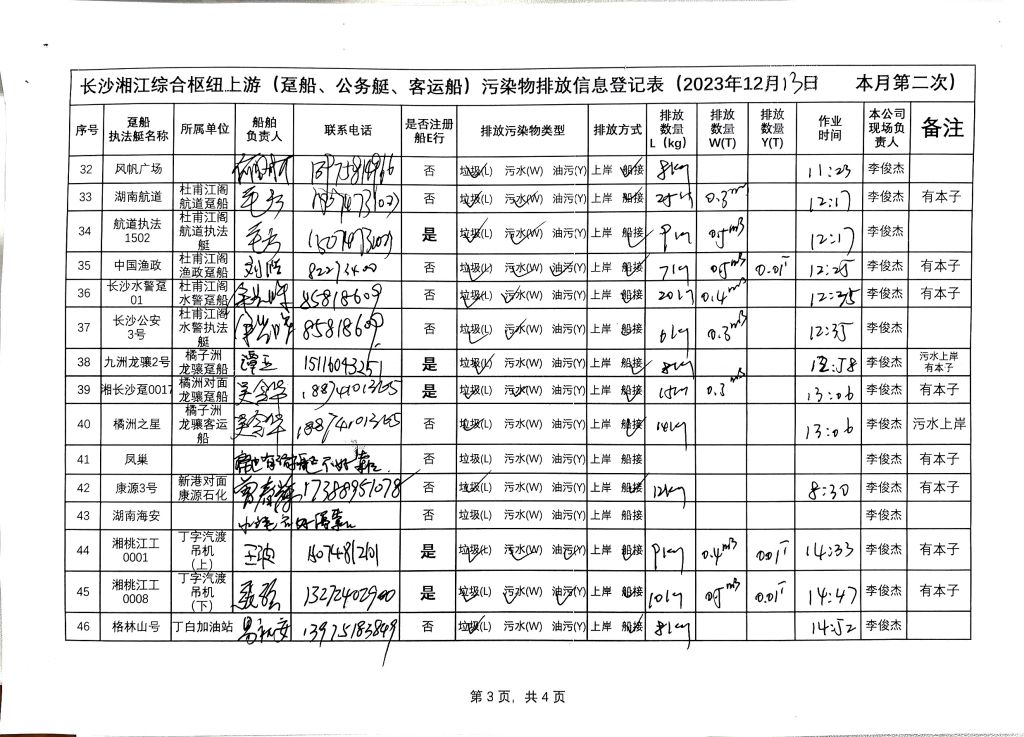 长沙湘江综合枢纽上游（趸船、公务艇、客运船）污染物排放信息登记表（2023年12月13日 本月第二次）
序号 趸船执法艇名称 所属单位 船舶负责人 联系电话 是否注册船E行 排放污染物类型 排放方式 排放数量L（kg） 排放数量W(T) 排放数量Y(T) 作业时间 本公司现场负责人 备注
32 风帆广场 否 垃圾(L) 污水(W) 油污(Y) 上岸 船接 8kg 11:23 李俊杰
33 湖南航道 杜甫江阁航道趸船 否 垃圾(L) 污水(W) 油污(Y) 上岸 船接 25kg 0.3m³ 12:17 李俊杰 有本子
34 航道执法1502 杜甫江阁航道执法艇 是 垃圾(L) 污水(W) 油污(Y) 上岸 船接 9kg 0.5m³ 12:17 李俊杰
35 中国渔政 杜甫江阁渔政趸船 否 垃圾(L) 污水(W) 油污(Y) 上岸 船接 7kg 0.5m³ 0.01T 12:25 李俊杰 有本子
36 长沙水警趸01 杜甫江阁水警趸船 85818609 否 垃圾(L) 污水(W) 油污(Y) 上岸 船接 20kg 0.4m³ 12:35 李俊杰 有本子
37 长沙公安3号 杜甫江阁水警执法艇 85818609 否 垃圾(L) 污水(W) 油污(Y) 上岸 船接 6kg 0.3m³ 12:35 李俊杰 有本子
38 九洲龙骧2号 橘子洲龙骧趸船 谭玉 15116043251 是 垃圾(L) 污水(W) 油污(Y) 上岸 船接 8kg 12:58 李俊杰 污水上岸有本子
39 湘长沙趸0017 橘洲对面龙骧趸船 188741013165 是 垃圾(L) 污水(W) 油污(Y) 上岸 船接 15kg 0.3m³ 13:06 李俊杰 有本子
40 橘洲之星 橘子洲龙骧客运船 188741013165 否 垃圾(L) 污水(W) 油污(Y) 上岸 船接 14kg 13:06 李俊杰 污水上岸
41 凤巢 否 垃圾(L) 污水(W) 油污(Y) 上岸 船接 李俊杰 有本子
42 康源3号 新港对面康源石化 17388951078 否 垃圾(L) 污水(W) 油污(Y) 上岸 船接 12kg 8:30 李俊杰 有本子
43 湖南海安 否 垃圾(L) 污水(W) 油污(Y) 上岸 船接 李俊杰
44 湘桃江工0001 丁字汽渡吊机（上） 王波 是 垃圾(L) 污水(W) 油污(Y) 上岸 船接 9kg 0.4m³ 0.01T 14:33 李俊杰 有本子
45 湘桃江工0008 丁字汽渡吊机（下） 13272402900 是 垃圾(L) 污水(W) 油污(Y) 上岸 船接 10kg 0.5m³ 0.01T 14:47 李俊杰 有本子
46 格林山号 丁白加油站 13975183849 否 垃圾(L) 污水(W) 油污(Y) 上岸 船接 8kg 14:52 李俊杰
第 3 页，共 4 页